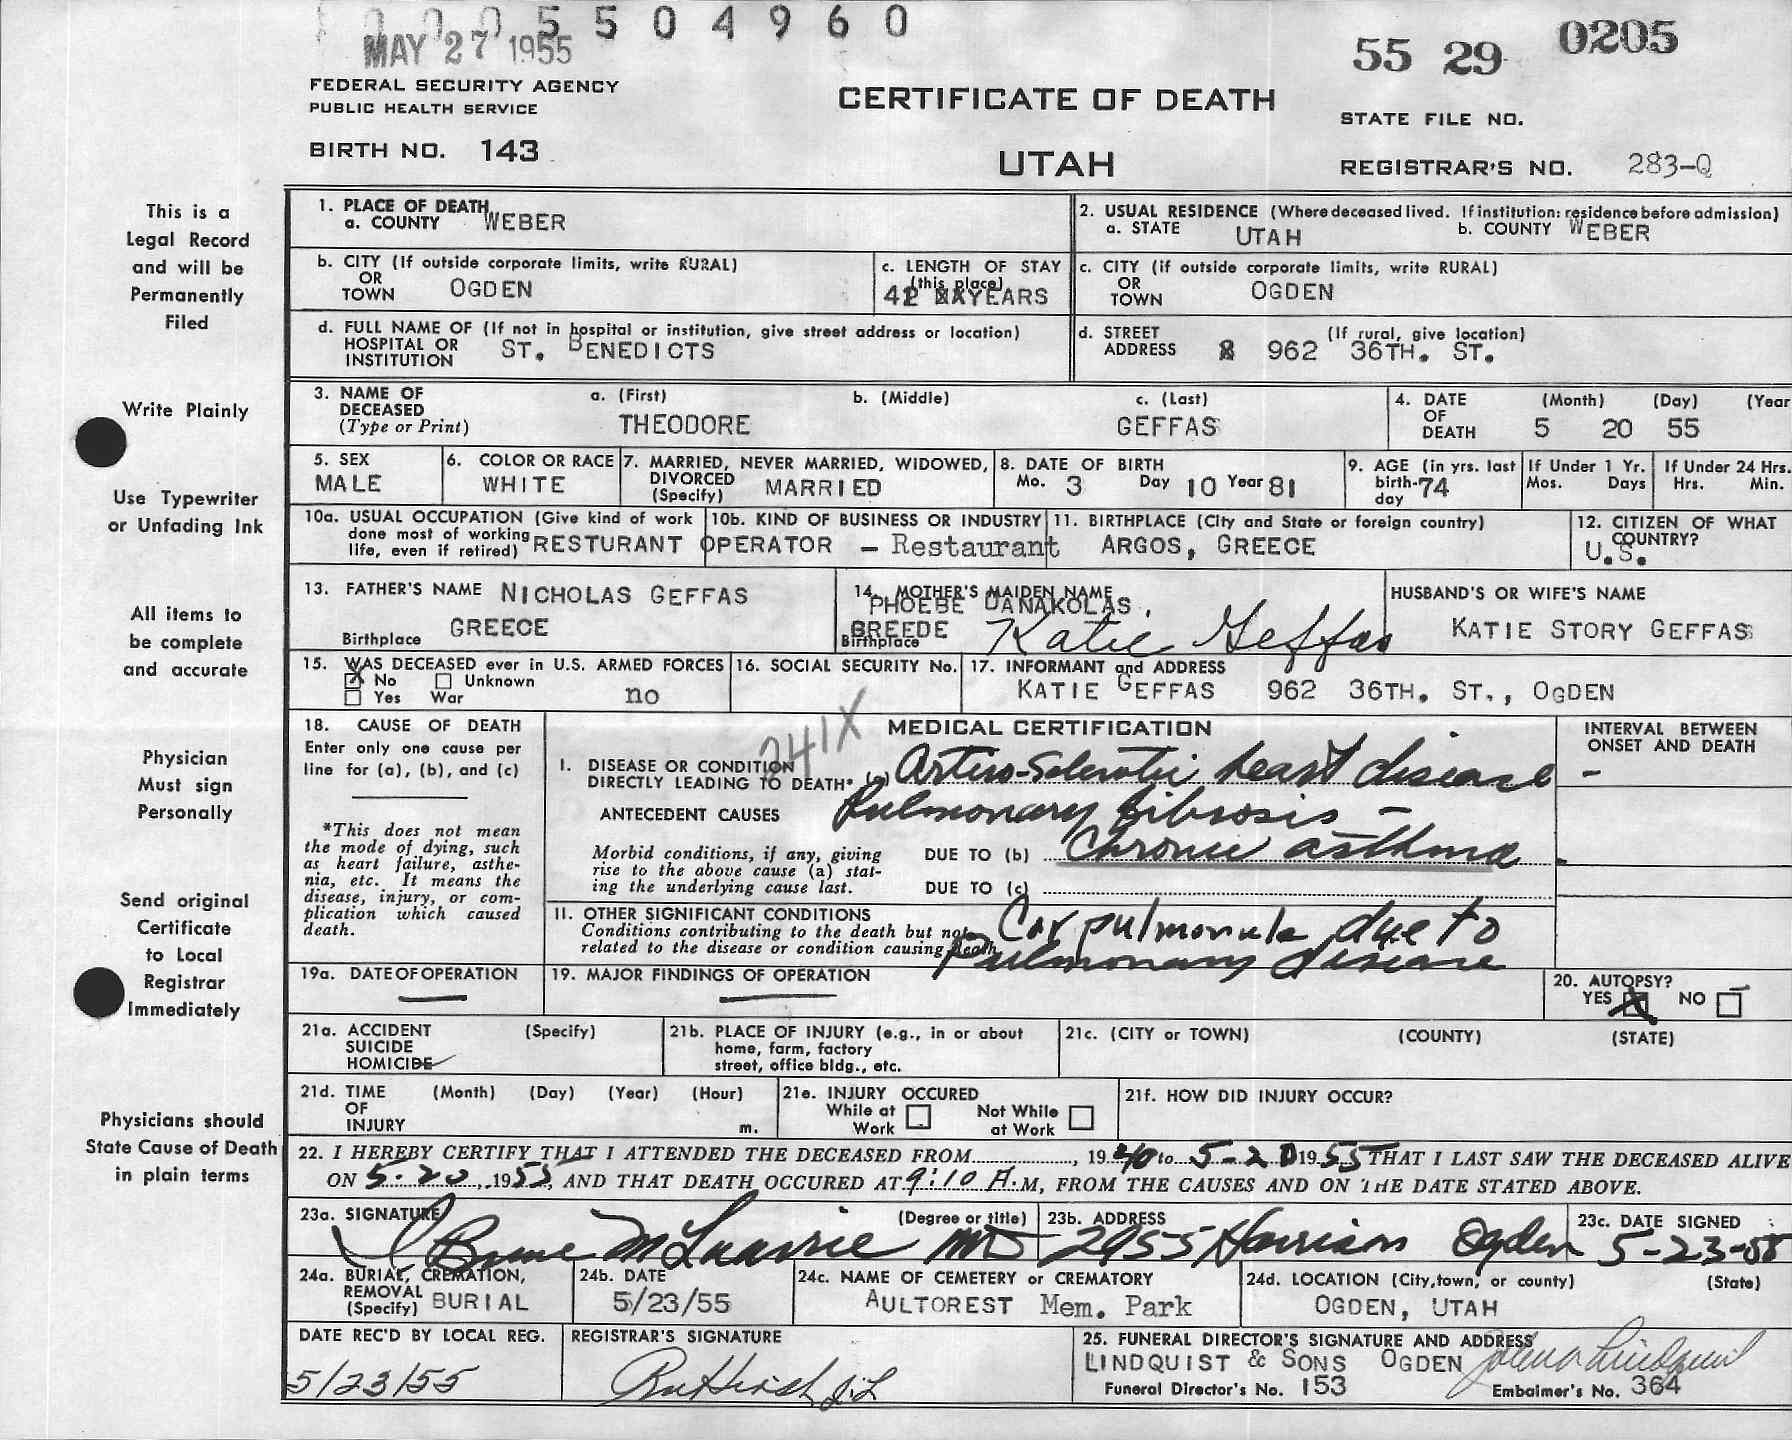 0005504960
MAY 27 1955
55 29 0205
FEDERAL SECURITY AGENCY
PUBLIC HEALTH SERVICE
CERTIFICATE OF DEATH
STATE FILE NO.
BIRTH NO. 143
UTAH
REGISTRAR'S NO. 283-Q
This is a
Legal Record
and will be
Permanently
Filed
Write Plainly
Use Typewriter
or Unfading Ink
All items to
be complete
and accurate
Physician
Must sign
Personally
Send original
Certificate
to Local
Registrar
Immediately
Physicians should
State Cause of Death
in plain terms
1. PLACE OF DEATH
a. COUNTY WEBER
2. USUAL RESIDENCE (Where deceased lived. If institution: residence before admission)
a. STATE UTAH b. COUNTY WEBER
b. CITY (If outside corporate limits, write RURAL)
OR
TOWN OGDEN
c. LENGTH OF STAY
(this place)
42 YEARS
c. CITY (if outside corporate limits, write RURAL)
OR
TOWN OGDEN
d. FULL NAME OF (If not in hospital or institution, give street address or location)
HOSPITAL OR
INSTITUTION ST. BENEDICTS
d. STREET (If rural, give location)
ADDRESS 962 36TH. ST.
3. NAME OF
DECEASED
(Type or Print)
a. (First) b. (Middle) c. (Last)
THEODORE GEFFAS
4. DATE (Month) (Day) (Year
OF
DEATH 5 20 55
5. SEX
MALE
6. COLOR OR RACE
WHITE
7. MARRIED, NEVER MARRIED, WIDOWED,
DIVORCED
(Specify) MARRIED
8. DATE OF BIRTH
Mo. 3 Day 10 Year 81
9. AGE (in yrs. last
birth-
day 74
If Under 1 Yr.
Mos. Days
If Under 24 Hrs.
Hrs. Min.
10a. USUAL OCCUPATION (Give kind of work
done most of working
life, even if retired) RESTURANT OPERATOR
10b. KIND OF BUSINESS OR INDUSTRY
- Restaurant
11. BIRTHPLACE (City and State or foreign country)
ARGOS, GREECE
12. CITIZEN OF WHAT
COUNTRY?
U.S.
13. FATHER'S NAME NICHOLAS GEFFAS
Birthplace GREECE
14. MOTHER'S MAIDEN NAME
PHOEBE DANAKOLAS
BREEDE
Birthplace
Katie Geffas
HUSBAND'S OR WIFE'S NAME
KATIE STORY GEFFAS
15. WAS DECEASED ever in U.S. ARMED FORCES
No Unknown
Yes War no
16. SOCIAL SECURITY No.
17. INFORMANT and ADDRESS
KATIE GEFFAS 962 36TH. ST., OGDEN
241X
18. CAUSE OF DEATH
Enter only one cause per
line for (a), (b), and (c)
*This does not mean
the mode of dying, such
as heart failure, asthe-
nia, etc. It means the
disease, injury, or com-
plication which caused
death.
MEDICAL CERTIFICATION
INTERVAL BETWEEN
ONSET AND DEATH
I. DISEASE OR CONDITION
DIRECTLY LEADING TO DEATH* (a) Arterio-Sclerotic heart disease -
ANTECEDENT CAUSES Pulmonary fibrosis -
Morbid conditions, if any, giving
rise to the above cause (a) stat-
ing the underlying cause last.
DUE TO (b) Chronic asthma
DUE TO (c)
II. OTHER SIGNIFICANT CONDITIONS
Conditions contributing to the death but not
related to the disease or condition causing death.
Cor pulmonale due to
Pulmonary disease
19a. DATE OF OPERATION
19. MAJOR FINDINGS OF OPERATION
20. AUTOPSY?
YES NO
21a. ACCIDENT (Specify)
SUICIDE
HOMICIDE
21b. PLACE OF INJURY (e.g., in or about
home, farm, factory
street, office bldg., etc.
21c. (CITY or TOWN) (COUNTY) (STATE)
21d. TIME (Month) (Day) (Year) (Hour)
OF
INJURY m.
21e. INJURY OCCURED
While at Work Not While at Work
21f. HOW DID INJURY OCCUR?
22. I HEREBY CERTIFY THAT I ATTENDED THE DECEASED FROM , 1940 to 5-20 1955 THAT I LAST SAW THE DECEASED ALIVE
ON 5-20, 1955, AND THAT DEATH OCCURED AT 9:10 A.M, FROM THE CAUSES AND ON THE DATE STATED ABOVE.
23a. SIGNATURE (Degree or title)
MD
23b. ADDRESS
2955 Harrison Ogden
23c. DATE SIGNED
5-23-55
24a. BURIAL, CREMATION,
REMOVAL
(Specify) BURIAL
24b. DATE
5/23/55
24c. NAME OF CEMETERY or CREMATORY
AULTOREST Mem. Park
24d. LOCATION (City, town, or county) (State)
OGDEN, UTAH
DATE REC'D BY LOCAL REG.
5/23/55
REGISTRAR'S SIGNATURE
25. FUNERAL DIRECTOR'S SIGNATURE AND ADDRESS
LINDQUIST & SONS OGDEN
Funeral Director's No. 153
Embalmer's No. 364